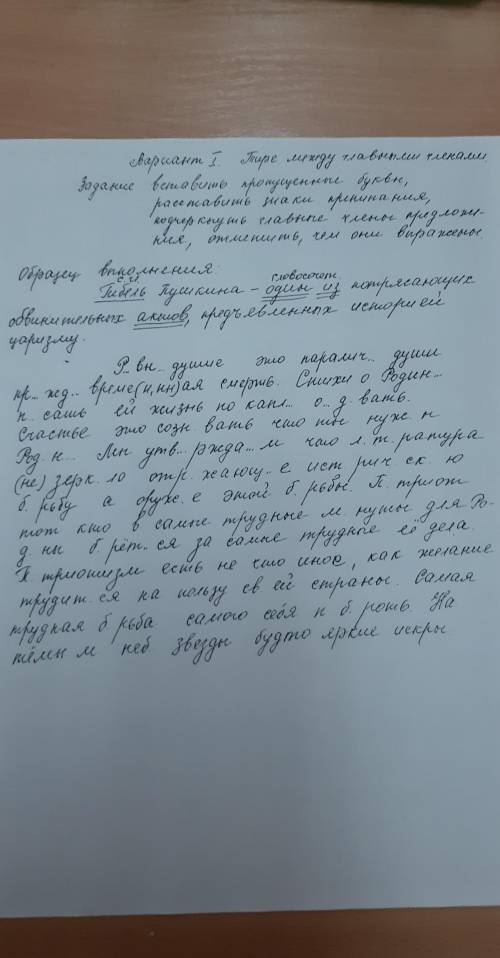 Вариант I. Тире между главными членами.
Задание вставить пропущенные буквы,
расставить знаки препинания,
подчеркнуть главные члены предложе-
ния, отметить, чем они выражены
Образец выполнения:
сущ. словосочет.
Гибель Пушкина – один из потрясающих
обвинительных актов, предъявленных историей
царизму.
Р...вн...душие это паралич... души
пр...жд... време(н,нн)ая смерть. Стихи о Родин...
п.сать ей жизнь по капл... о...д.вать.
Счастье это созн вать что ты нуж.н
Род.н... Мы утв...ржда...м что л.т.ратура
(не) зерк.ло отр.жающ...е ист рич.ск.ю
б.рьбу а оруж.е этой б.рьбы. П.триот
тот кто в самые трудные м нуты для Ро-
д.ны б.рёт.ся за самые трудные её дела.
П.триотизм есть не что иное, как желание
трудит.ся на пользу св ей страны. Самая
трудная б рьба самого себя п б.роть. На
тёмн м неб. звезды будто яркие искры